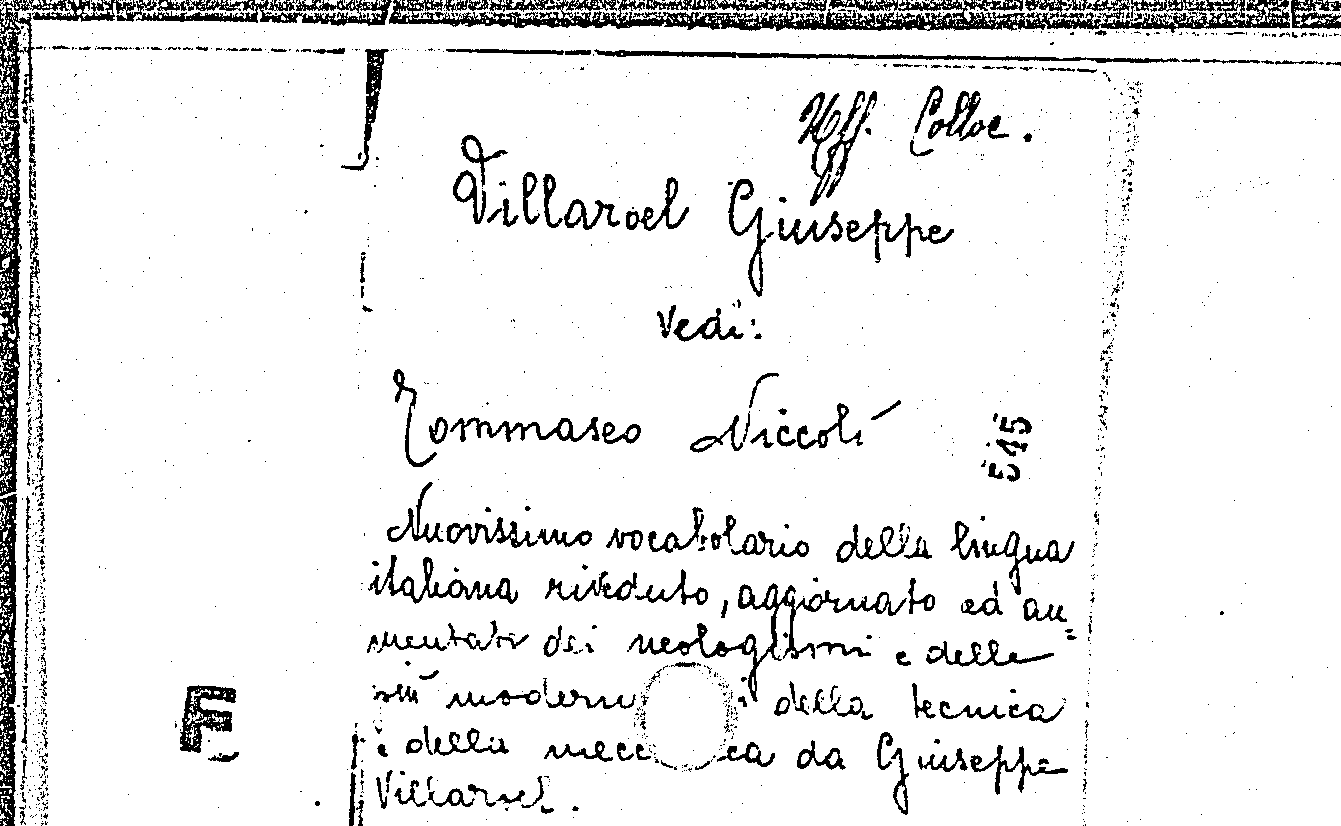 Uff. Colloc.
Villaroel Giuseppe
Vedi:
Tommaseo Niccolò
545
Nuovissimo vocabolario della lingua
italiana riveduto, aggiornato ed au=
mentato dei neologismi e delle
più della tecnica
e della da Giuseppe
Villaroel.
F